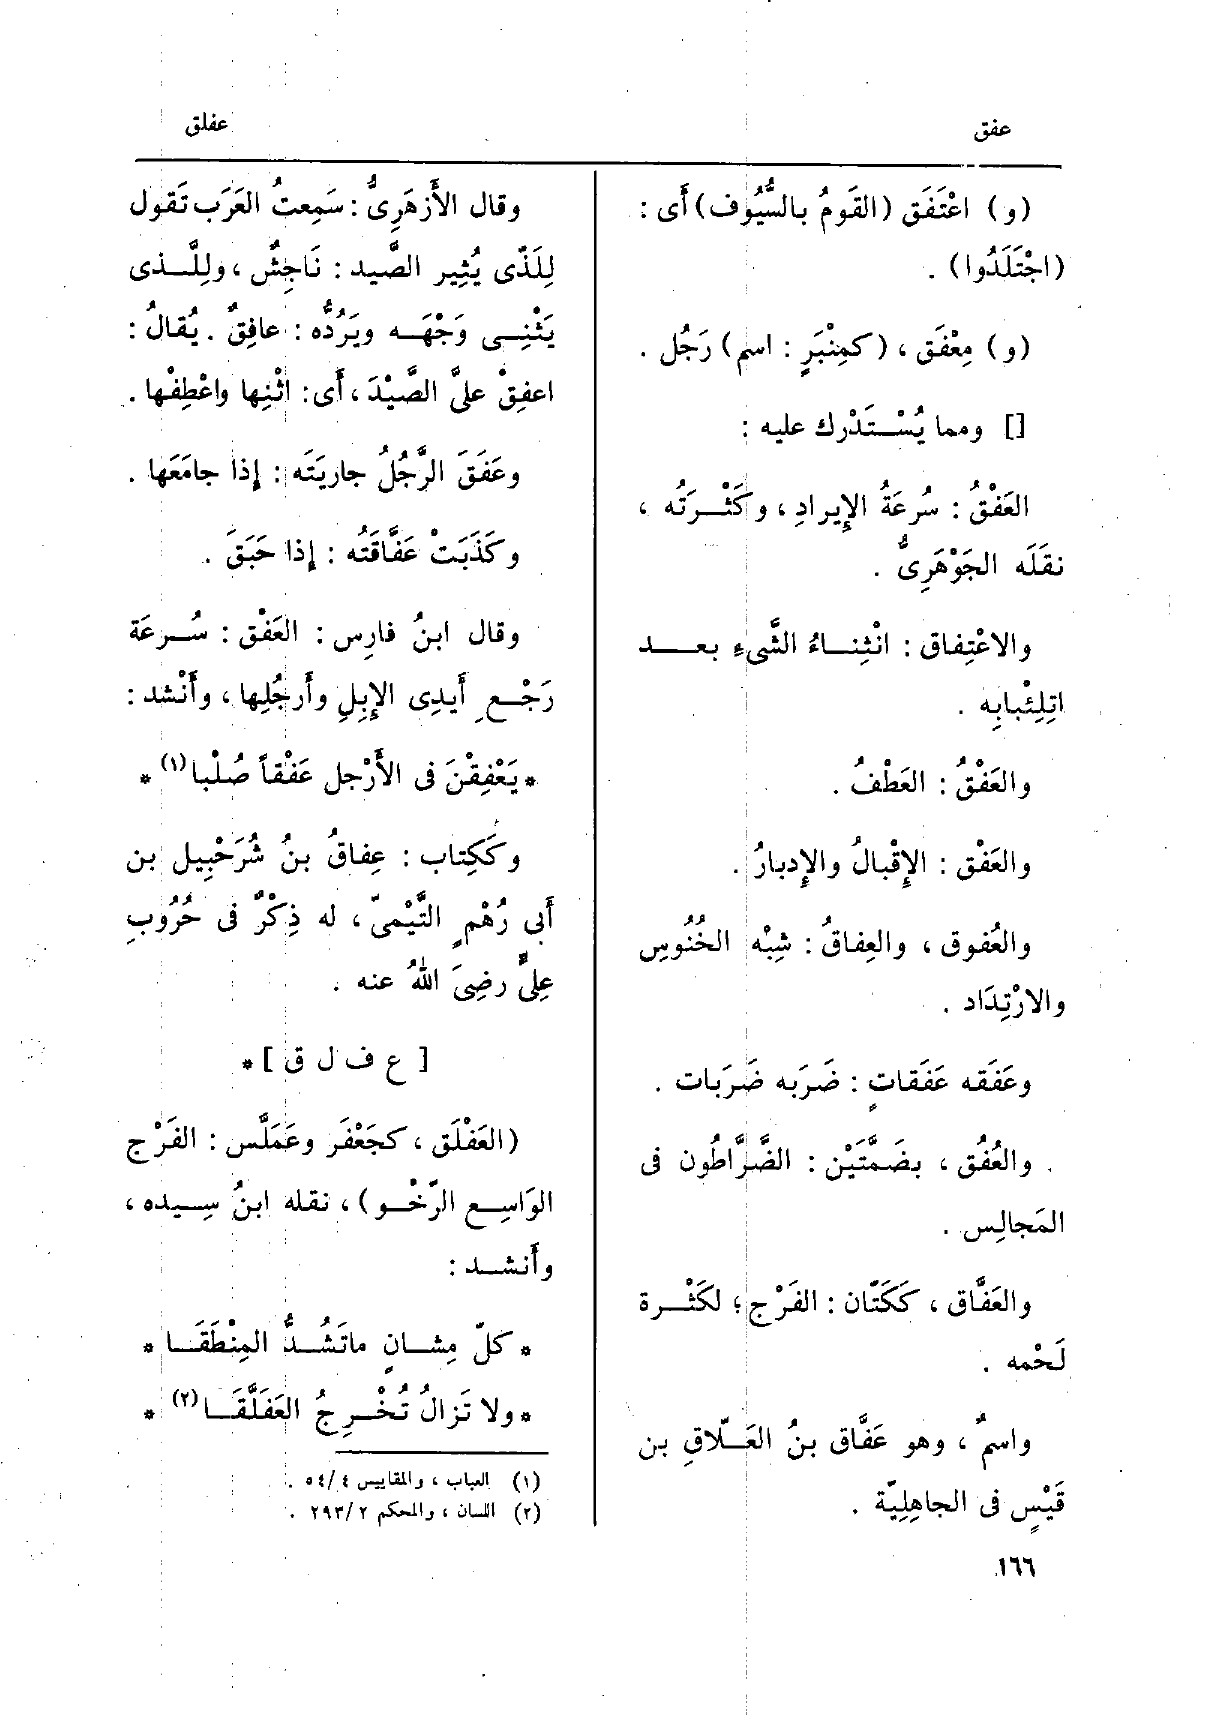 عفق
عفلق
(و) اعْتَفَق (القَومُ بالسُّيُوف) أَى :
(اجْتَلَدُوا) .
(و) مِعْفَق ، (كمِنْبَرٍ : اسم) رَجُل .
[] ومما يُسْتَدْرك عليه :
العَفْقُ : سُرعَةُ الإِيرادِ ، وكَثْرتُه ،
نقَلَه الجَوْهَرِىُّ .
والاعْتِفاق : انْثِناءُ الشَّىءِ بعد
اتِلِئبابِه .
والعَفْقُ : العَطْفُ .
والعَفْق : الإِقْبالُ والإِدبارُ .
والعُفوق ، والعِفاقُ : شِبْه الخُنُوسِ
والارْتِدَاد .
وعَفَقه عَفَقاتٍ : ضَرَبه ضَرَبات .
والعُفُق ، بضَمَّتَيْن : الضَّرَّاطُون فى
المَجالِس .
والعَفَّاق ، كَكَتّان : الفَرْج ؛ لكَثْرة
لَحْمه .
واسمٌ ، وهو عَفَّاق بنُ العَلّاقِ بن
قَيْسٍ فى الجاهِلِيّة .
وقال الأَزهَرِىُّ : سَمِعتُ العَرَب تَقول
لِلَذّى يُثِير الصَّيد : نَاجِشٌ ، ولِلَّذى
يَثْنِى وَجْهَه ويَرُدُّه : عافِقٌ . يُقالُ :
اعفِقْ علىَّ الصَّيْدَ ، أَى : اثْنِها واعْطِفْها .
وعَفَقَ الرَّجُلُ جاريَتَه : إِذا جامَعَها .
وكَذَبَتْ عَفَّاقَتُه : إِذا حَبَقَ .
وقال ابنُ فارِس : العَفْق : سُرعَة
رَجْعِ أَيدِى الإِبِلِ وأَرجُلِها ، وأَنْشد :
* يَعْفِقْنَ فى الأَرْجل عَفْقاً صُلْبا (١) *
وكَكِتاب : عِفاقُ بنُ شُرَحْبِيل بن
أَبى رُهْمٍ التَّيْمىّ ، له ذِكْرٌ فى حُرُوبِ
عِلىٍّ رضِىَ اللهُ عنه .
[ ع ف ل ق ] *
(العَفْلَق ، كجَعْفَر وعَمَلَّس : الفَرْج
الوَاسِع الرّخْو) ، نقله ابنُ سِيده ،
وأَنشد :
* كلّ مِشانٍ ماتَشُدُّ المِنْطَقَا *
* ولا تَزالُ تُخْرِجُ العَفَلَّقَا (٢) *
(١) العباب ، والمقاييس ٤/ ٥٤ .
(٢) اللسان ، والمحكم ٢ /٢٩٣ .
١٦٦